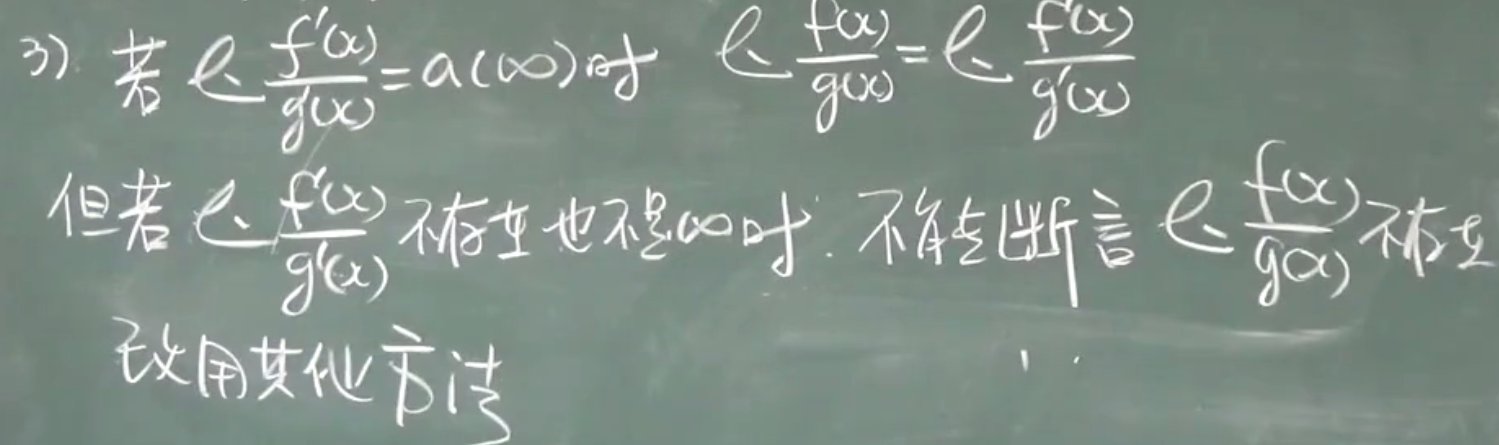 3) 若 l. f'(x)/g'(x) = a(∞)时 l. f(x)/g(x) = l. f'(x)/g'(x)
但若 l. f'(x)/g'(x) 不存在也不是∞时. 不能断言 l. f(x)/g(x) 不存在
改用其他方法